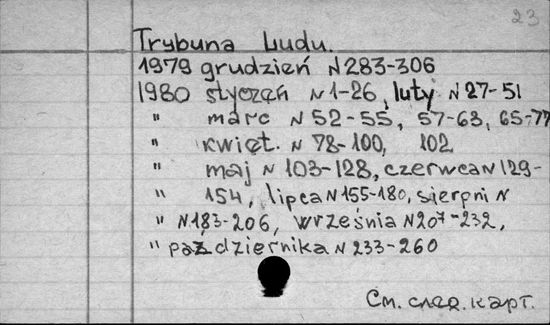 23
Trybuna Ludu.
1979 grudzień N 283-306
1980 styczeń N 1-26, luty N 27-51
" marc N 52-55, 57-63, 65-77
" kwięt. N 78-100, 102
" maj N 103-128, czerwca N 129-
" 154, lipca N 155-180, sierpni N
" N 183-206, września N 207-232,
" października N 233-260
См. след. карт.